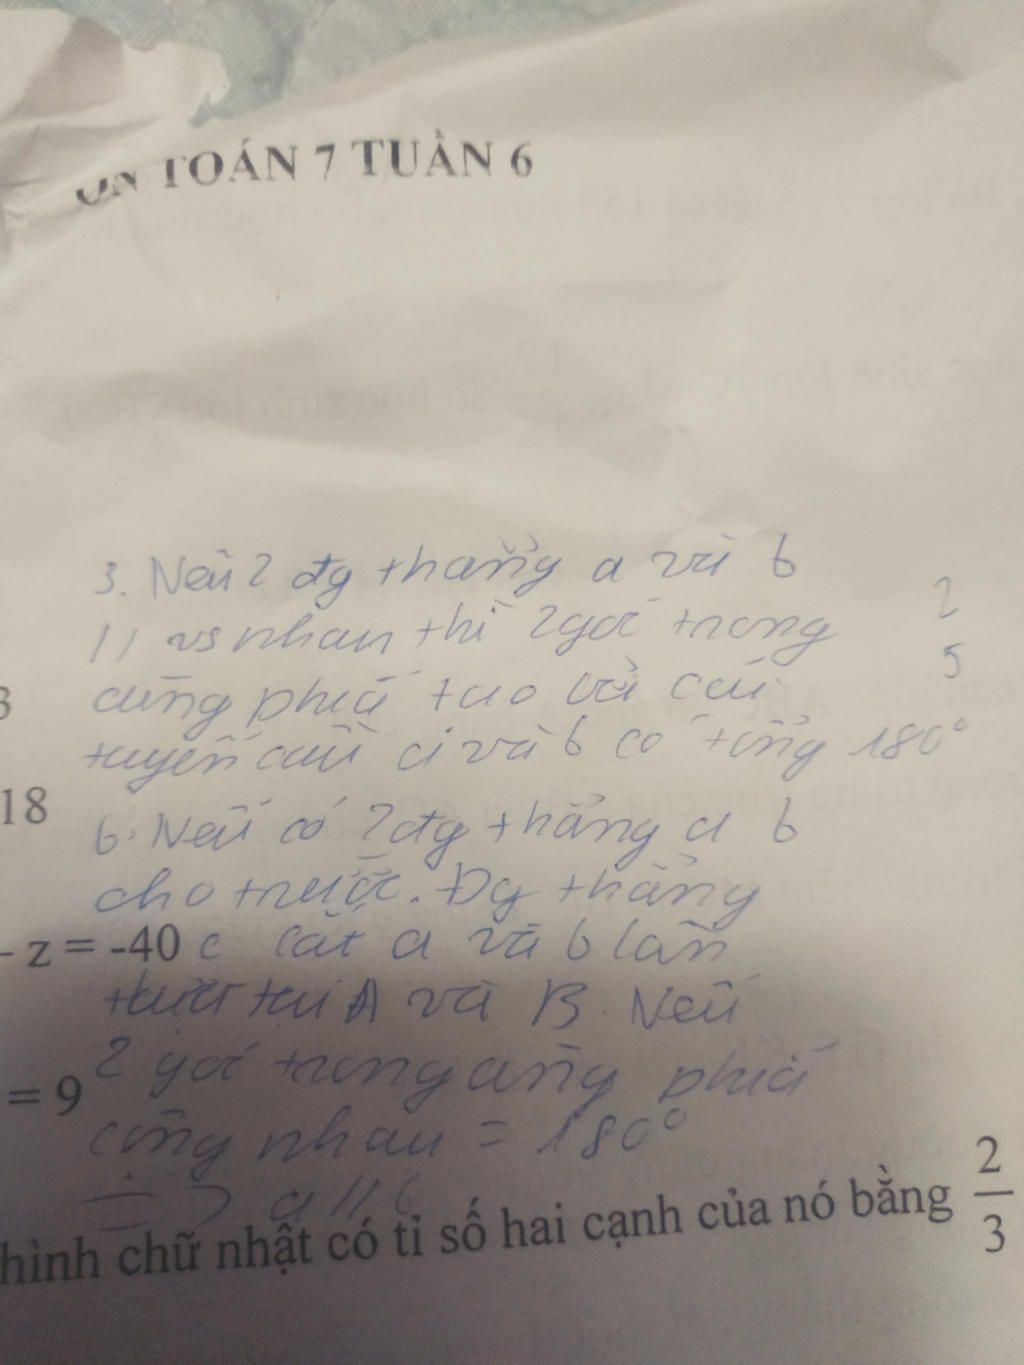 ÔN TOÁN 7 TUẦN 6
3. Nếu 2 đg thẳng a và b
// vs nhau thì 2 góc trong
2
cùng phía tạo bởi cái
5
3
tuyến của a và b có tổng 180°
18
6. Nếu có 2 đg thẳng a b
cho trước. Đg thẳng
- z = -40
c cắt a và b lần
lượt tại A và B. Nếu
2 góc trong cùng phía
= 9
cộng nhau = 180°
=> a // b
hình chữ nhật có tỉ số hai cạnh của nó bằng 2/3